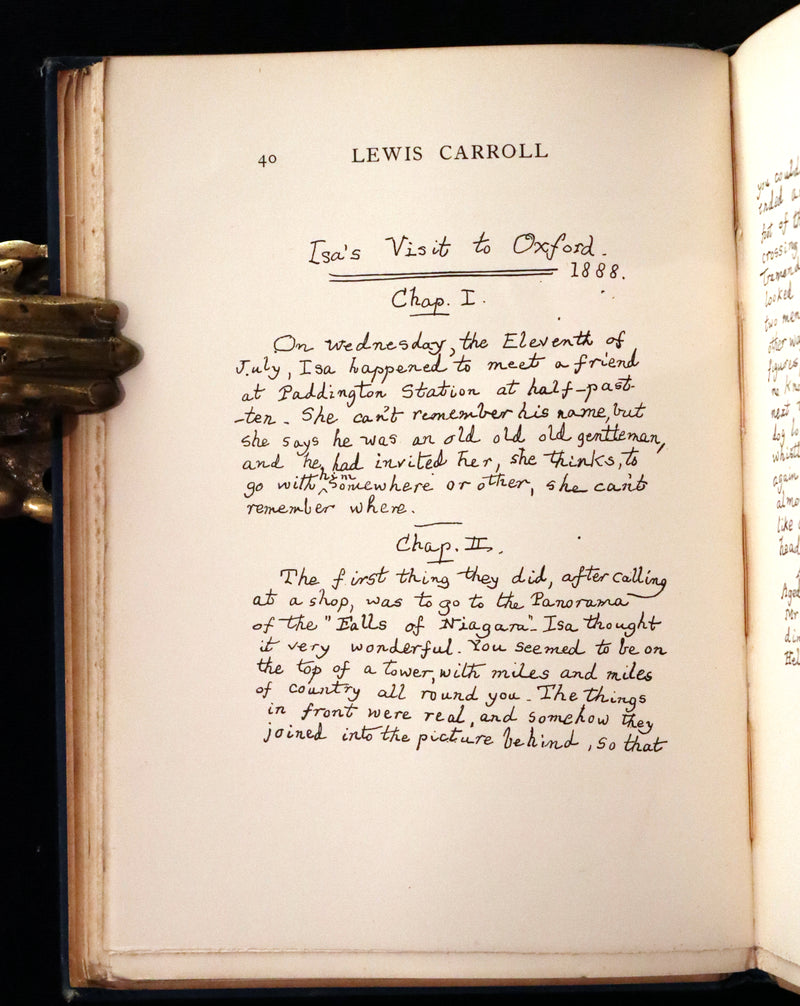 40 LEWIS CARROLL
Isa's Visit to Oxford.
1888.
Chap. I.
On Wednesday, the Eleventh of
July, Isa happened to meet a friend
at Paddington Station at half-past-
-ten. She can't remember his name, but
she says he was an old old old gentleman,
and he had invited her, she thinks, to
go with him somewhere or other, she can't
remember where.
Chap. II.
The first thing they did, after calling
at a shop, was to go to the Panorama
of the "Falls of Niagara". Isa thought
it very wonderful. You seemed to be on
the top of a tower, with miles and miles
of country all round you. The things
in front were real, and somehow they
joined into the picture behind, so that
you could
ended a
foot of th
crossing
Tremend
looked
two men
other wa
figures,
next
dog
whistl
again
almo
like
head
Aged